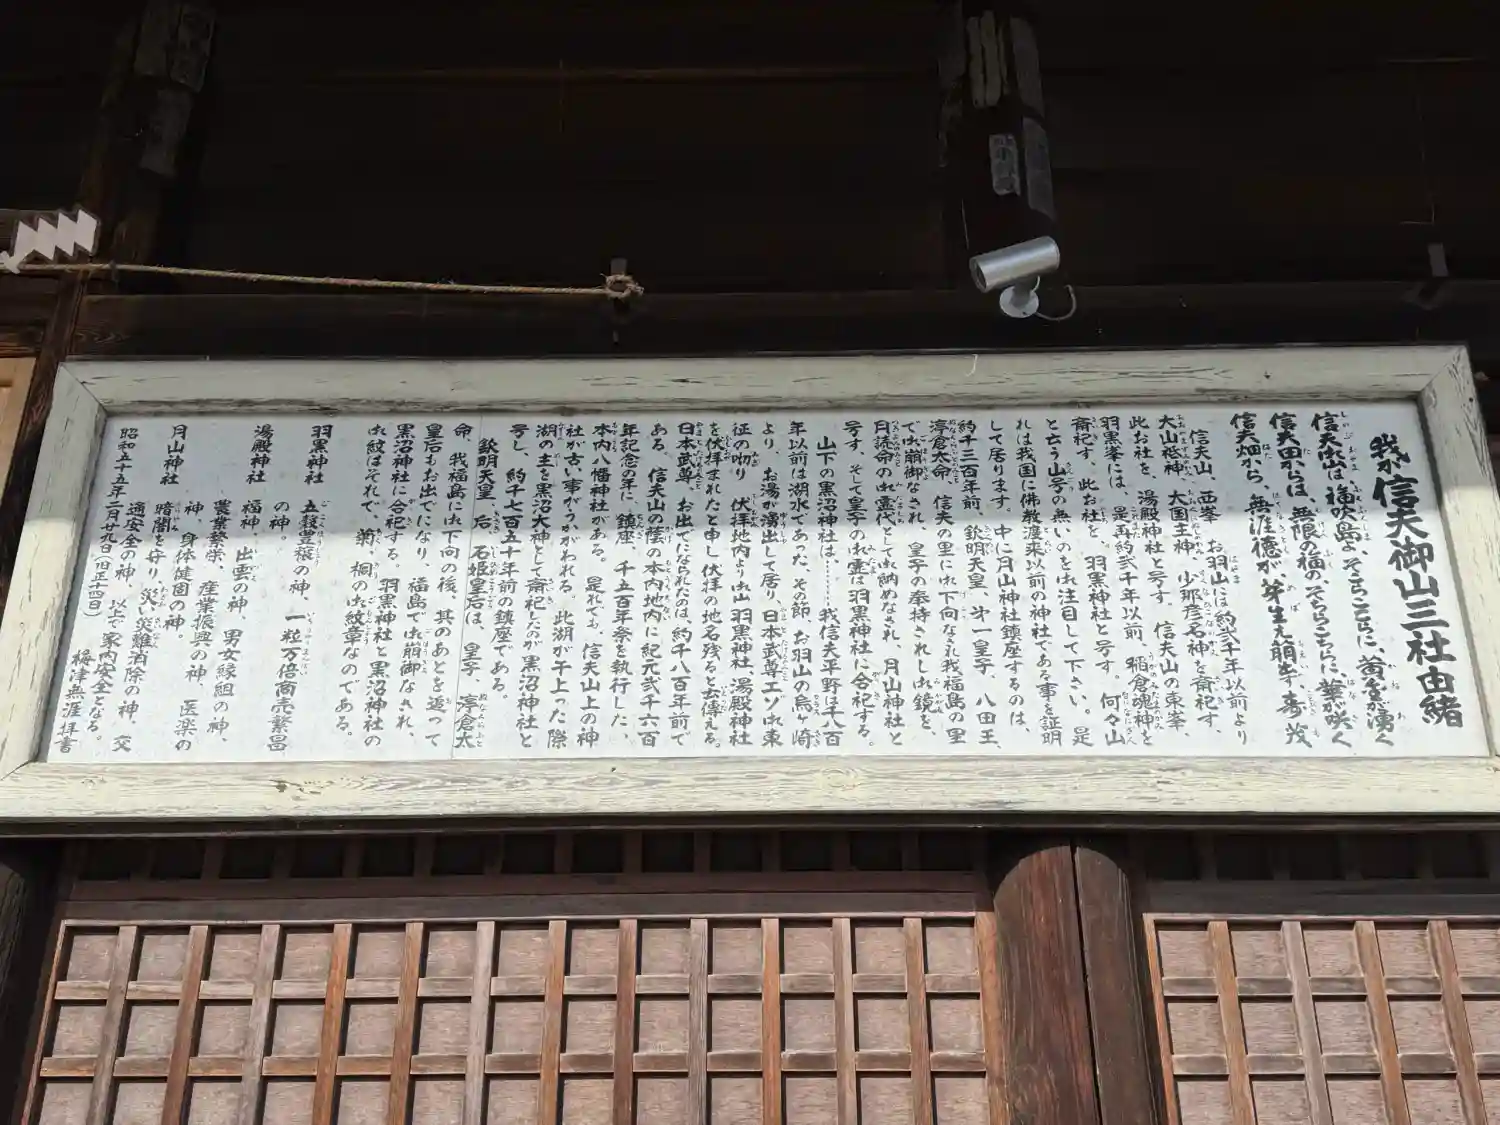 我が信夫御山三社由緒
信夫御山は福吹島よ、そちらこちらに、黄金が湧く
信夫田からは、無限の福の、そちらこちらに、華が咲く
信夫畑から、無涯徳が、芽生え萠す、壽茂
信夫山、西峯、お羽山には約弐千年以前より
大山祗神、大国主神、少那彦名神を斎祀す、
此お社を、湯殿神社と号す。信夫山の東峯、
羽黒峯には、是再約弐千年以前、稲倉魂神を
斎祀す、此お社を、羽黒神社と号す。何々山
と云う山号の無いのを御注目して下さい。是
れは我国に佛教渡来以前の神社である事を証明
して居ります。中に月山神社鎮座するのは、
約千三百年前、欽明天皇、第一皇子、八田王、
渟倉太命、信夫の里に御下向なされ我福島の里
で御崩御なされ、皇子の奉持されし御鏡を、
月読命の御霊代として御納めなされ、月山神社と
号す、そして皇子の御霊は羽黒神社に合祀する。
山下の黒沼神社は……我信夫平野は千八百
年以前は湖水であった、その節、お羽山の烏ヶ崎
より、お湯が湧出して居り、日本武尊エゾ御東
征の砌り 伏拝地内より御山羽黒神社、湯殿神社
を伏拝まれたと申し伏拝の地名残ると云傳える。
日本武尊、お出でになられたのは、約千八百年前で
ある、信夫山の蔭の本内地内に紀元弐千六百
年記念の年に、鎮座、千五百年祭を執行した、
本内八幡神社がある。是れでも、信夫山上の神
社が古い事がうかがわれる。此湖が干上った際
湖の主を黒沼大神として斎祀したのが黒沼神社と
号し、約千七百五十年前の鎮座である。
欽明天皇、后、石姫皇后は、皇子、渟倉太
命、我福島に御下向の後、其のあとを追って
皇后もお出でになり、福島で御崩御なされ、
黒沼神社に合祀する。羽黒神社と黒沼神社の
御紋はそれで、菊、桐の御紋章なのである。
羽黒神社 五穀豊穣の神、一粒万倍商売繁昌
の神。
湯殿神社 福神、出雲の神、男女縁組の神、
農業繁栄、産業振興の神、医薬の
神、身体健固の神。
月山神社 暗闇を守り、災い災難消除の神、交
通安全の神、以上で家内安全となる。
昭和五十五年二月廿九日(旧正十四日) 梅津無涯拝書